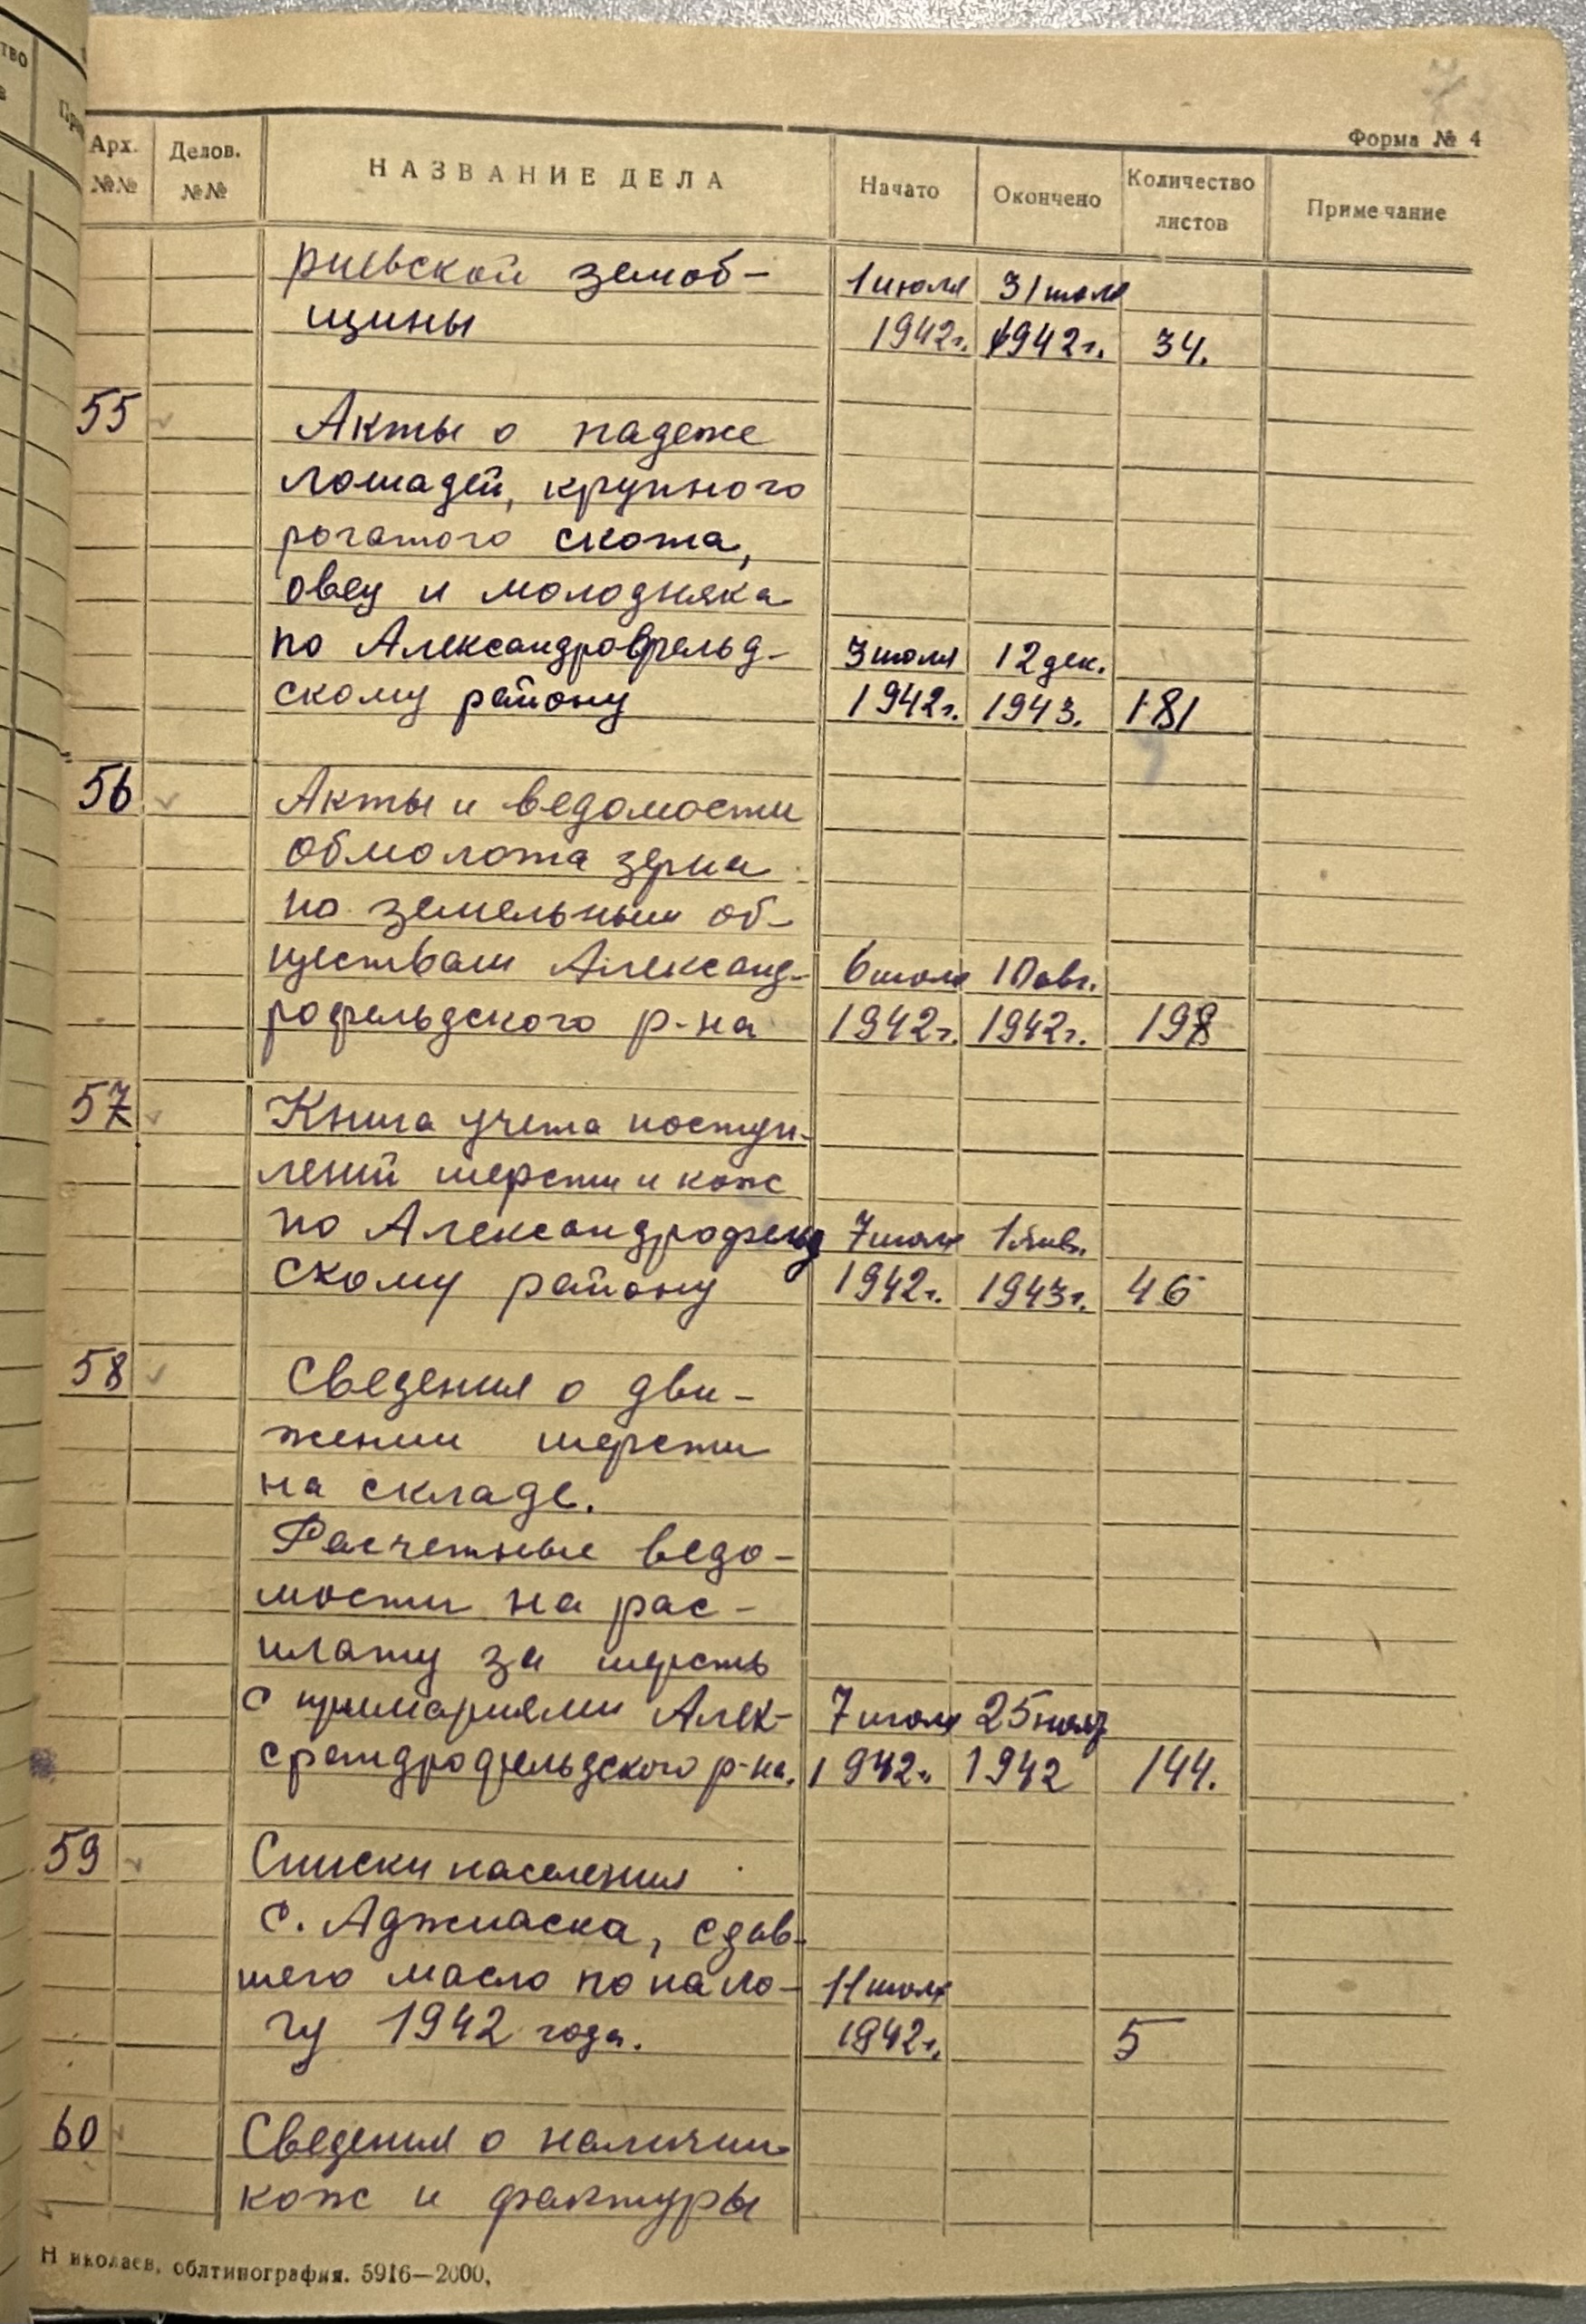 Форма № 4
Арх. №№ Делов. №№ НАЗВАНИЕ ДЕЛА Начато Окончено Количество листов Примечание
риевской земоб- 1 июля 31 июля
щины 1942г. 1942г. 34.
55 Акты о падеже
лошадей, крупного
рогатого скота,
овец и молодняка
по Александрофельд- 3 июля 12 дек.
скому району 1942г. 1943. 181
56 Акты и ведомости
обмолота зерна
по земельным об-
ществам Александ- 6 июля 10 авг.
рофельдского р-на 1942г. 1942г. 198
57 Книга учета поступ-
лений шерсти и кож
по Александрофельд 7 июля 1 янв.
скому району 1942г. 1943г. 46
58 Сведения о дви-
жении шерсти
на складе.
Расчетные ведо-
мости на рас-
плату за шерсть
с примариями Алек- 7 июля 25 нояб
срандрофельдского р-на. 1942г. 1942 144.
59 Списки населения
с. Аджиаска, сдав-
шего масло по нало- 11 июля
гу 1942 года. 1942г. 5
60 Сведения о наличии
кож и фактуры
Николаев, облтипография. 5916—2000.